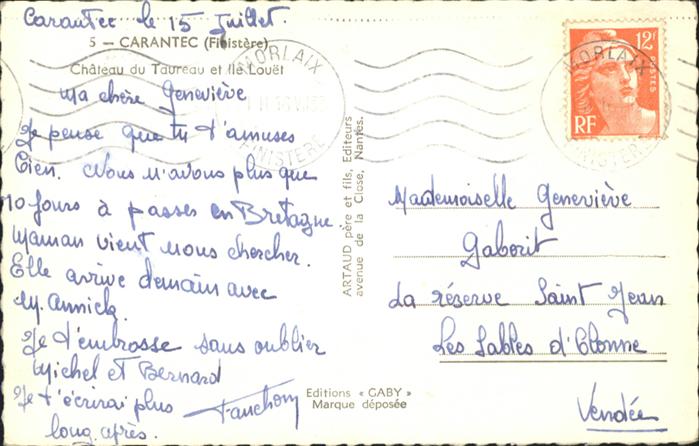 Carantec le 15 Juillet.
5 — CARANTEC (Finistère)
Château du Taureau et Ile Louët
Ma chère Geneviève
Je pense que tu t'amuses
bien. Nous n'avons plus que
10 jours à passer en Bretagne.
Maman vient nous chercher.
Elle arrive demain avec
M. Annick.
Je t'embrasse sans oublier
Michel et Bernard
Je t'écrirai plus
long après.
Fanchon
ARTAUD père et fils, Editeurs
avenue de la Close, Nantes.
Editions « GABY »
Marque déposée
12F
POSTES
RF
MORLAIX
FINISTERE
MORLAIX
FINISTERE
Mademoiselle Geneviève
Gaborit
La réserve Saint Jean
Les Sables d'Olonne
Vendée